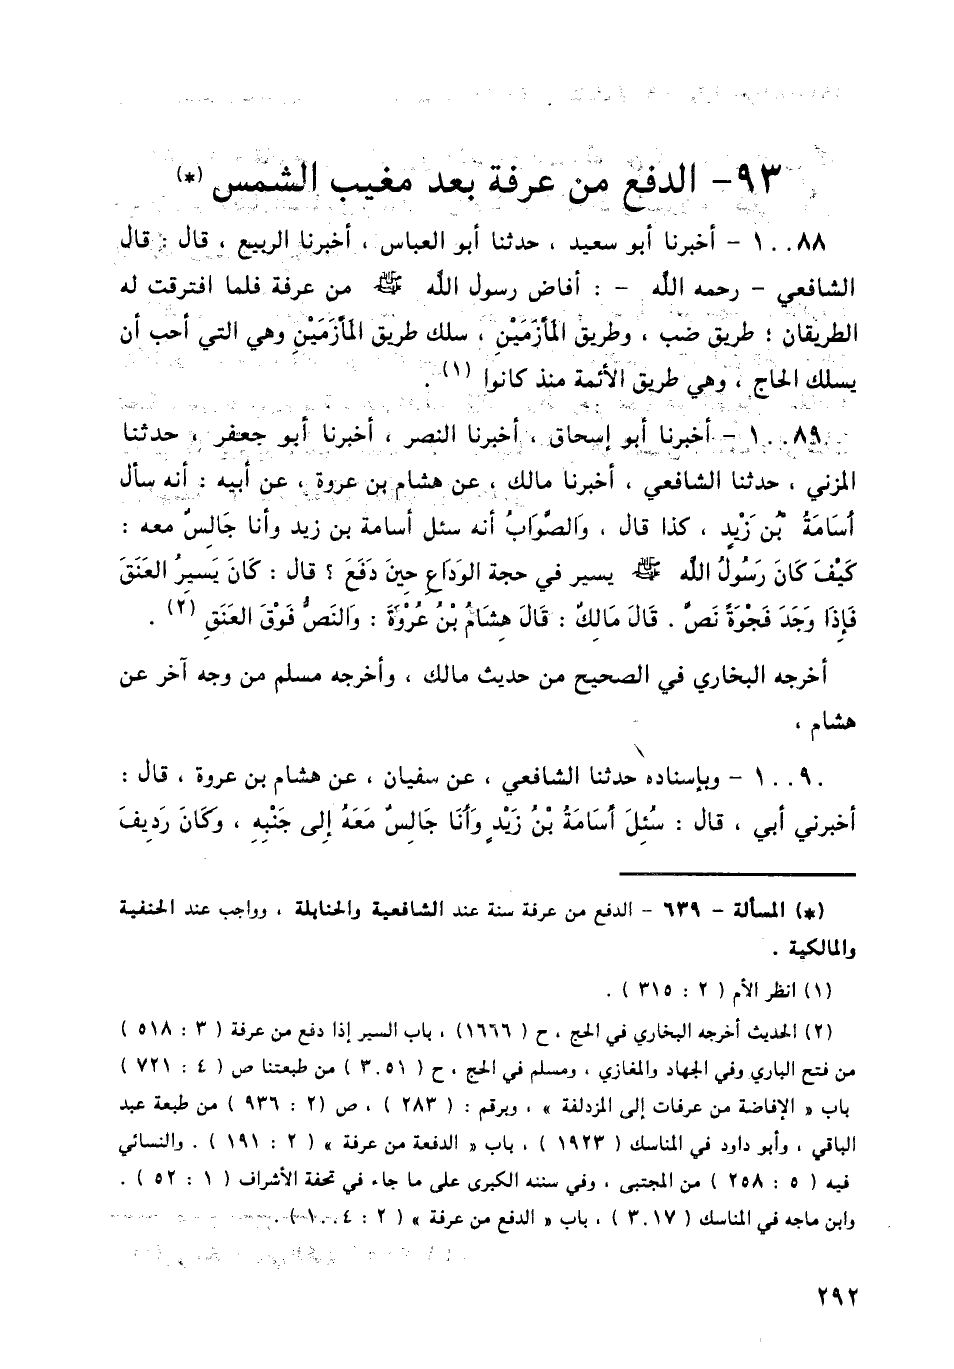 ٩٣- الدفع من عرفة بعد مغيب الشمس (*)
١٠٠٨٨ - أخبرنا أبو سعيد ، حدثنا أبو العباس ، أخبرنا الربيع ، قال : قال
الشافعي - رحمه الله - : أفاض رسول الله ﷺ من عرفة فلما افترقت له
الطريقان ؛ طريق ضب ، وطريق المَأزَمَيْنِ ، سلك طريق المَأزَمَيْنِ وهي التي أحب أن
يسلك الحاج ، وهي طريق الأئمة منذ كانوا (١) .
١٠٠٨٩ - أخبرنا أبو إسحاق ، أخبرنا النصر ، أخبرنا أبو جعفر ، حدثنا
المزني ، حدثنا الشافعي ، أخبرنا مالك ، عن هشام بن عروة ، عن أبيه : أنه سأل
أسَامَةُ بْن زَيْدٍ ، كذا قال ، وَالصَّوَابُ أنه سئل أسامة بن زيد وأنا جَالِسٌ معه :
كَيْفَ كَانَ رَسُولُ الله ﷺ يسير في حجة الوَدَاعِ حِينَ دَفَعَ ؟ قال : كَانَ يَسيرُ العَنَقَ
فَإِذَا وَجَدَ فَجْوَةً نَصَّ . قَالَ مَالِكٌ : قَالَ هِشَامُ بْنُ عُرْوَةَ : وَالنَصُّ فَوْقَ العَنَقِ (٢) .
أخرجه البخاري في الصحيح من حديث مالك ، وأخرجه مسلم من وجه آخر عن
هشام ،
١٠٠٩٠ - وبإسناده حدثنا الشافعي ، عن سفيان ، عن هشام بن عروة ، قال :
أخبرني أبي ، قال : سُئِلَ أسَامَةُ بْنُ زَيْدٍ وَأنَا جَالِسٌ مَعَهُ إلى جَنْبِهِ ، وكَانَ رَدِيفَ
(*) المسألة - ٦٣٩ - الدفع من عرفة سنة عند الشافعية والحنابلة ، وواجب عند الحنفية
والمالكية .
(١) انظر الأم ( ٢ : ٣١٥ ) .
(٢) الحديث أخرجه البخاري في الحج ، ح ( ١٦٦٦) ، باب السير إذا دفع من عرفة ( ٣ : ٥١٨ )
من فتح الباري وفي الجهاد والمغازي ، ومسلم في الحج ، ح ( ٣٠٥١ ) من طبعتنا ص ( ٤ : ٧٢١ )
باب « الإفاضة من عرفات إلى المزدلفة » ، وبرقم : ( ٢٨٣ ) ، ص (٢ : ٩٣٦ ) من طبعة عبد
الباقي ، وأبو داود في المناسك ( ١٩٢٣ ) ، باب « الدفعة من عرفة » ( ٢ : ١٩١ ) . والنسائي
فيه ( ٥ : ٢٥٨ ) من المجتبى ، وفي سننه الكبرى على ما جاء في تحفة الأشراف ( ١ : ٥٢ ) .
وابن ماجه في المناسك ( ٣٠١٧ ) ، باب « الدفع من عرفة » ( ٢ : ١٠٠٤ ) .
٢٩٢